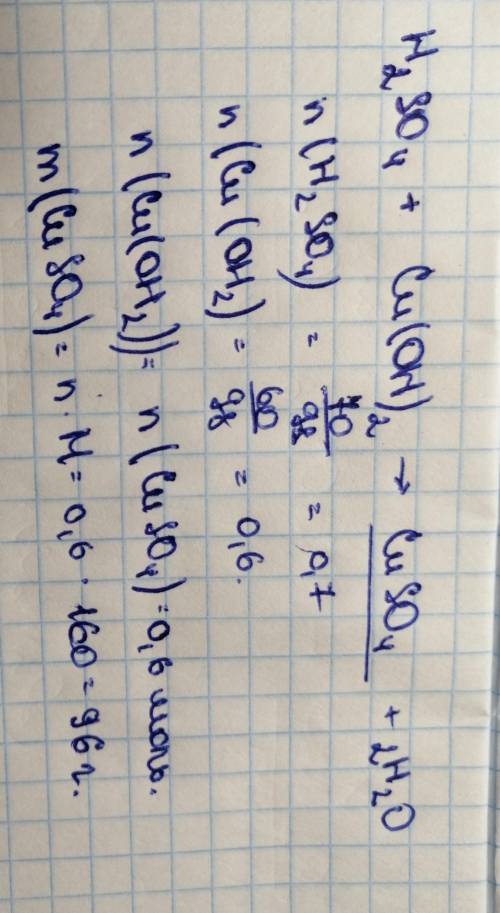 H₂SO₄ + Cu(OH)₂ → CuSO₄ + 2H₂O
n(H₂SO₄) = 70/98 = 0,7
n(Cu(OH₂) = 60/98 = 0,6.
n(Cu(OH₂)) = n(CuSO₄) = 0,6 моль.
m(CuSO₄) = n · M = 0,6 · 160 = 96 г.